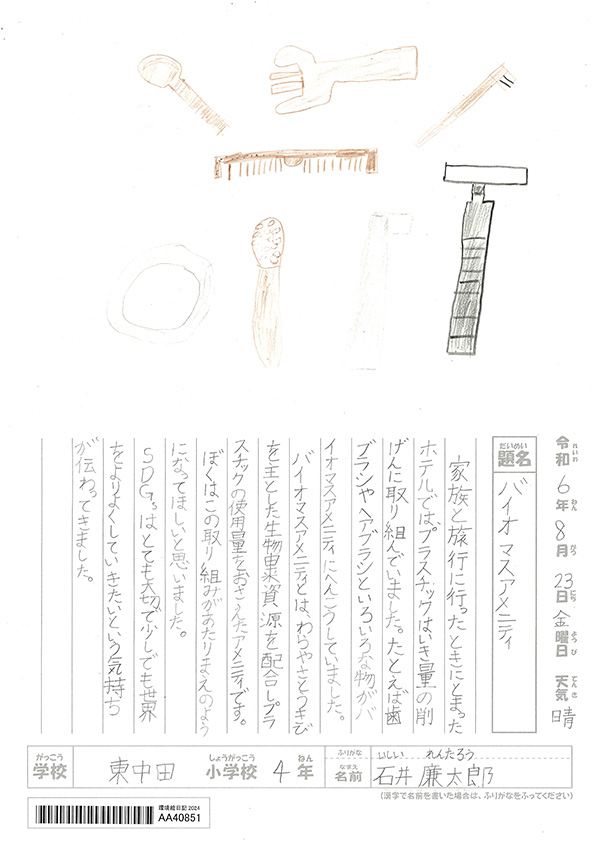 令和6年8月23日金曜日 天気 晴
れいわ ねん がつ にち ようび てんき
だいめい
題名 バイオマスアメニティ
家族と旅行に行ったときにとまった
ホテルでは、プラスチックはいき量の削
げんに取り組んでいました。たとえば歯
ブラシやヘアブラシといろいろな物がバ
イオマスアメニティにへんこうしていました。
バイオマスアメニティとは、わらやさとうきび
を主とした生物由来資源を配合しプラ
スチックの使用量をおさえたアメニティです。
ぼくはこの取り組みがあたりまえのよう
になってほしいと思いました。
SDGsはとても大切で少しでも世界
をよりよくしていきたいという気持ち
が伝わってきました。
がっこう しょうがっこう ねん
学校 東中田 小学校 4年
ふりがな いしい れんたろう
なまえ
名前 石井 廉太郎
(漢字で名前を書いた場合は、ふりがなをふってください)
環境絵日記2024
AA40851